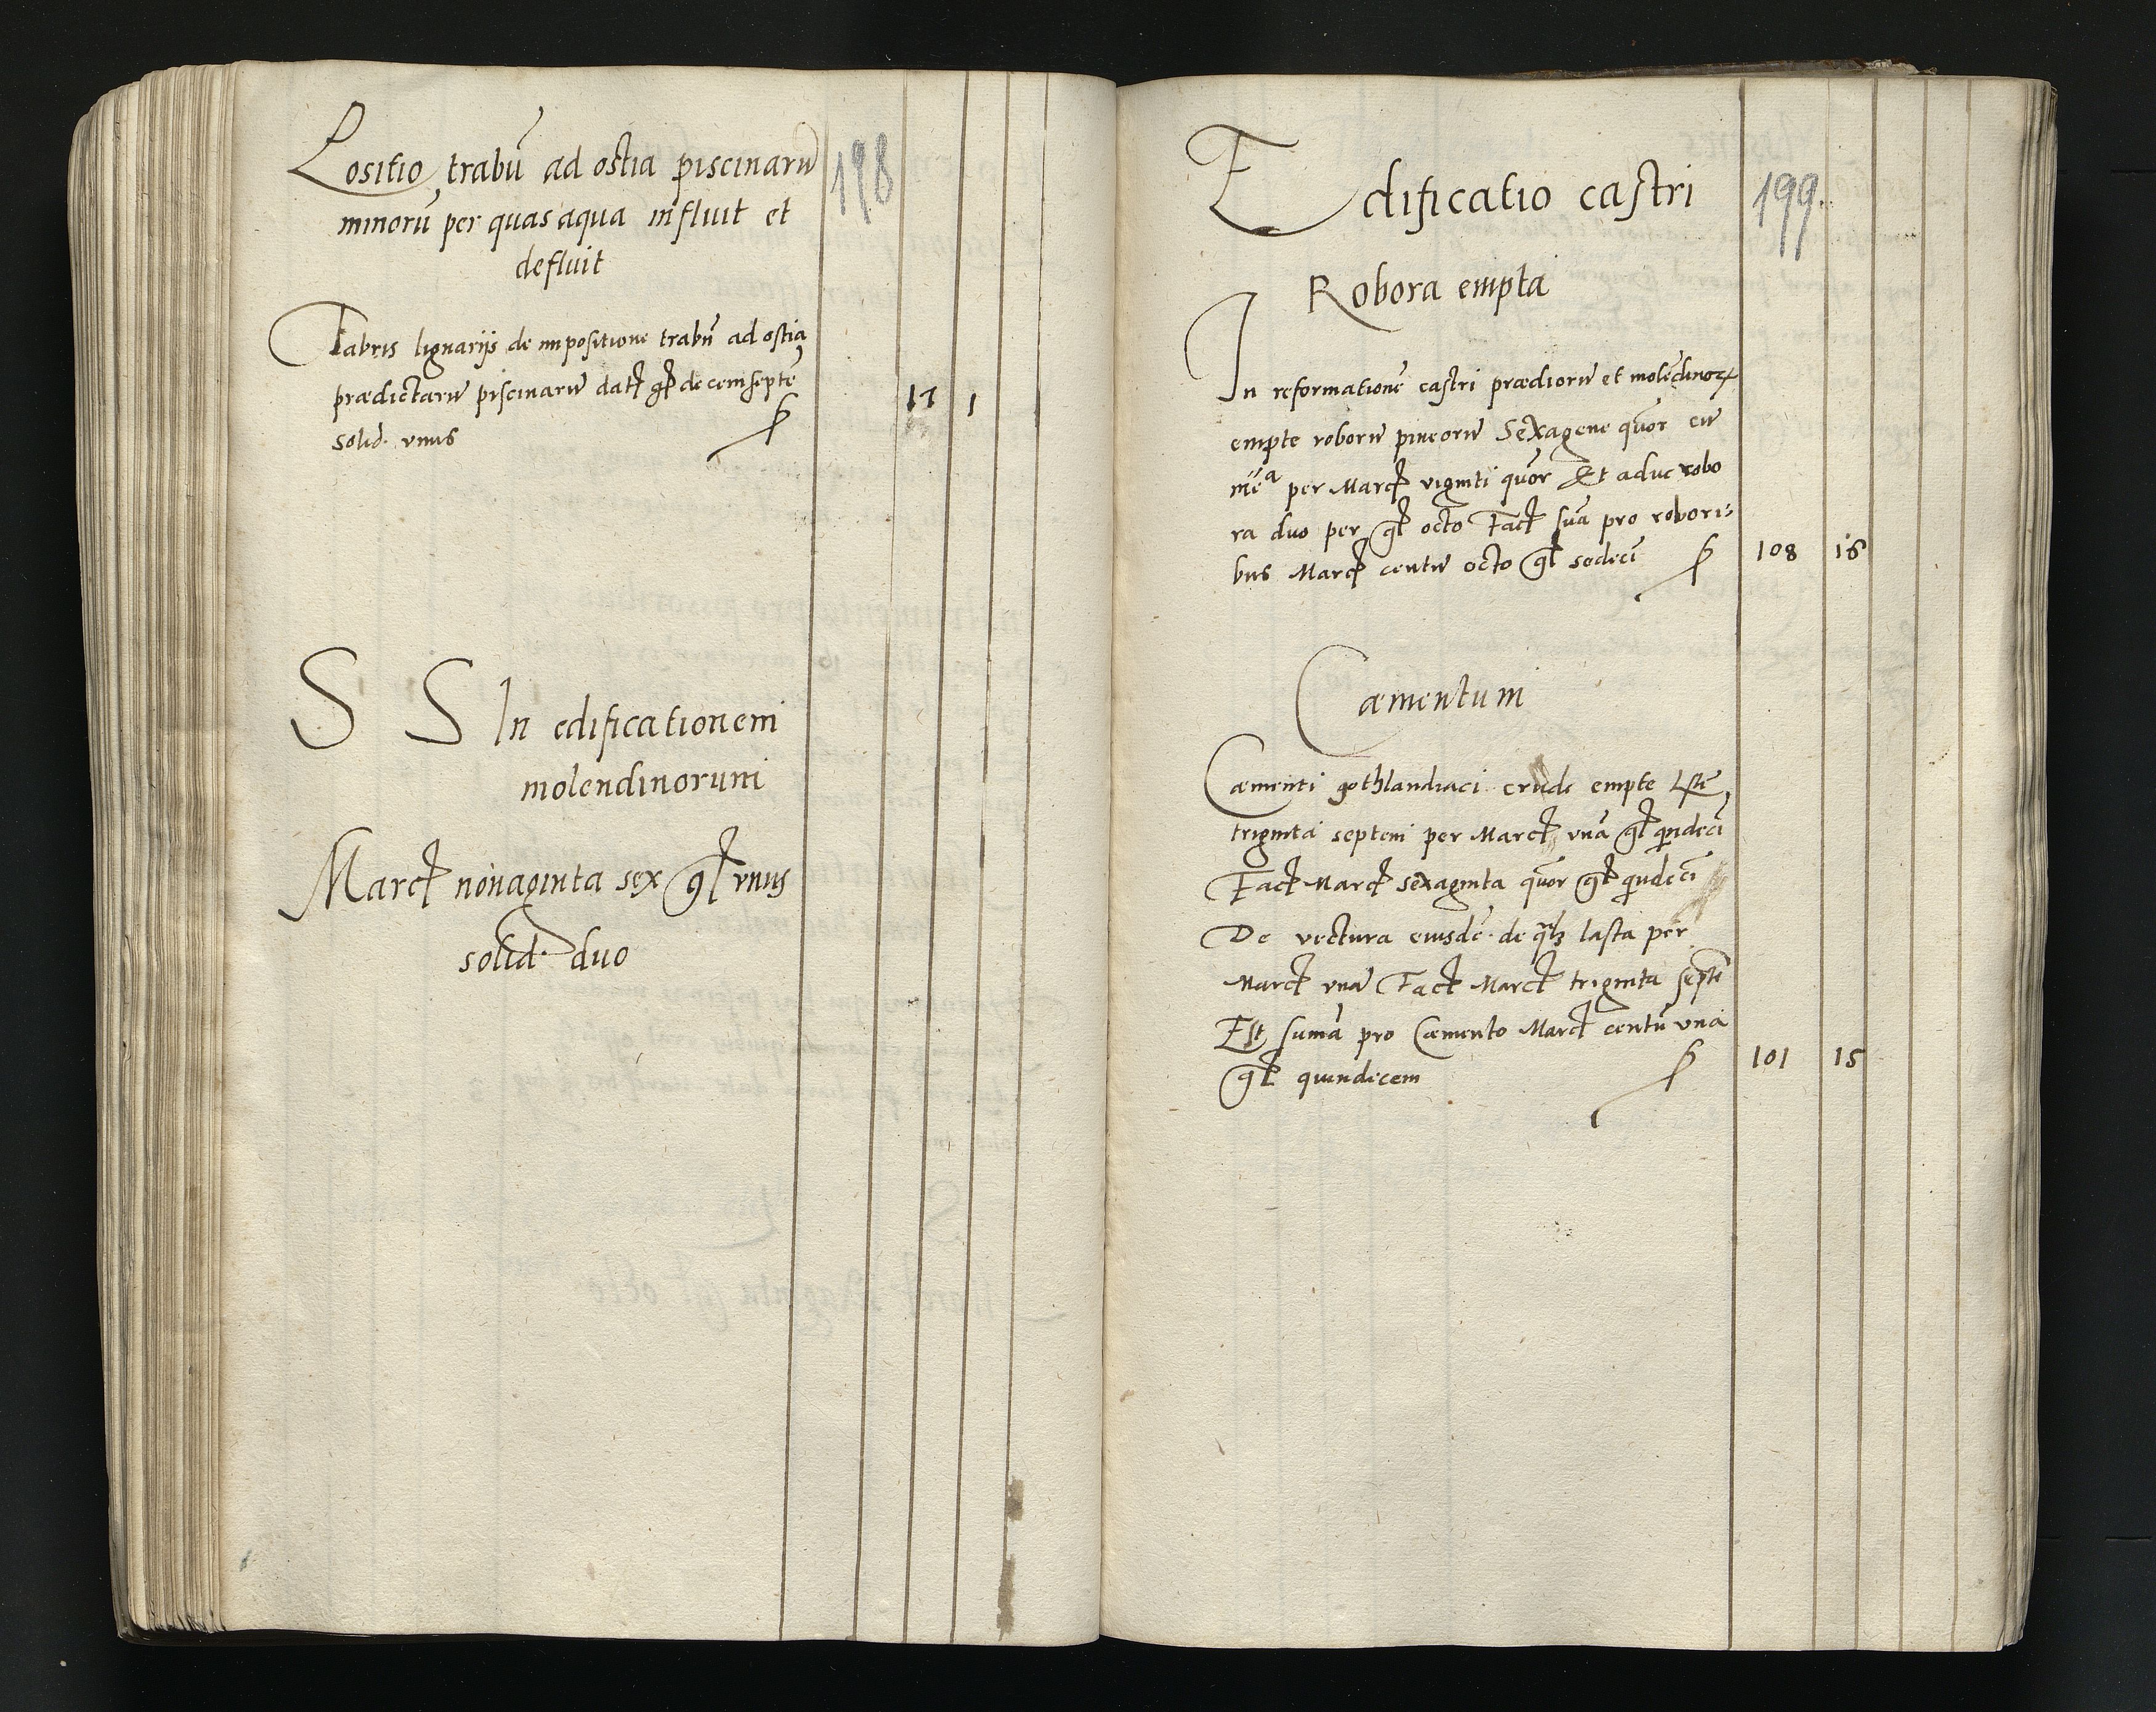 Positio trabū ad ostia piscinarū
198
minorū per quas aqua influit et
defluit
Fabris lignarijs de impositione trabū ad ostia
prædictarū piscinarū dat gͬ decemseptē
solid. vnus
17 1
S S In edificationem
molendinorum
Marc nonaginta sex gͬ vnus
solid. duo
Edificatio castri
199.
Robora empta
In reformationē castri prædiorū et molēdinoꝝ
empte roborū pineorū Sexagene quōr cū
mēᵃ per Marc viginti quōr Et aduc robo
ra duo per gͬ octo Fac sūa pro robori⸗
bus Marc centū octo gͬ sedecī
108 16
Cæmentum
Cæmenti gothlandiaci crude empte
triginta septem per Marc vnā gͬ quīdecī
Fac Marc sexaginta quōr gͬ quīdecī
De vectura eiusdē. de qͣlꝫ lasta per
Marc vnā Fac Marc triginta septē
Est sumā pro Cæmento Marc centū vna
gͬ quindecem
101 15